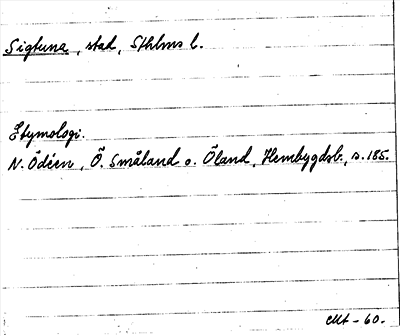 Sigtuna, stad, Sthlms l.
Etymologi.
N. Ödéen, Ö. Småland o. Öland, Hembygdsb., s. 185.
Mt - 60.